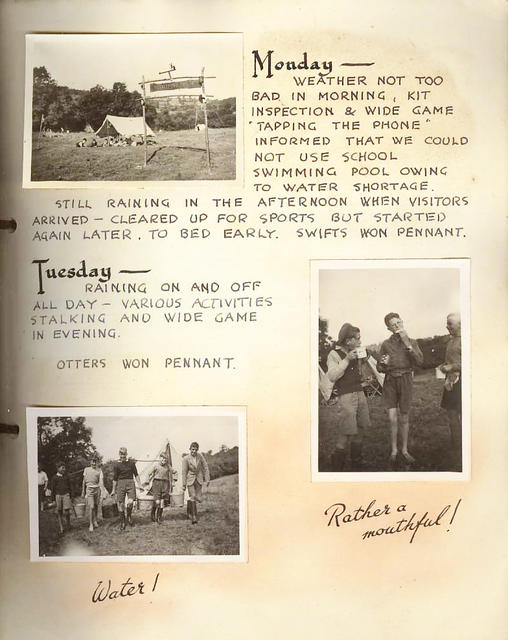 Monday —
WEATHER NOT TOO
BAD IN MORNING, KIT
INSPECTION & WIDE GAME
"TAPPING THE PHONE"
INFORMED THAT WE COULD
NOT USE SCHOOL
SWIMMING POOL OWING
TO WATER SHORTAGE.
STILL RAINING IN THE AFTERNOON WHEN VISITORS
ARRIVED – CLEARED UP FOR SPORTS BUT STARTED
AGAIN LATER. TO BED EARLY. SWIFTS WON PENNANT.
Tuesday —
RAINING ON AND OFF
ALL DAY – VARIOUS ACTIVITIES
STALKING AND WIDE GAME
IN EVENING.
OTTERS WON PENNANT.
Rather a
mouthful!
Water!